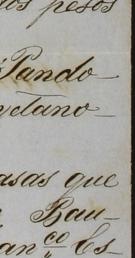 os pesos
Pando
yetano
asas que
Bau-
an co Es-